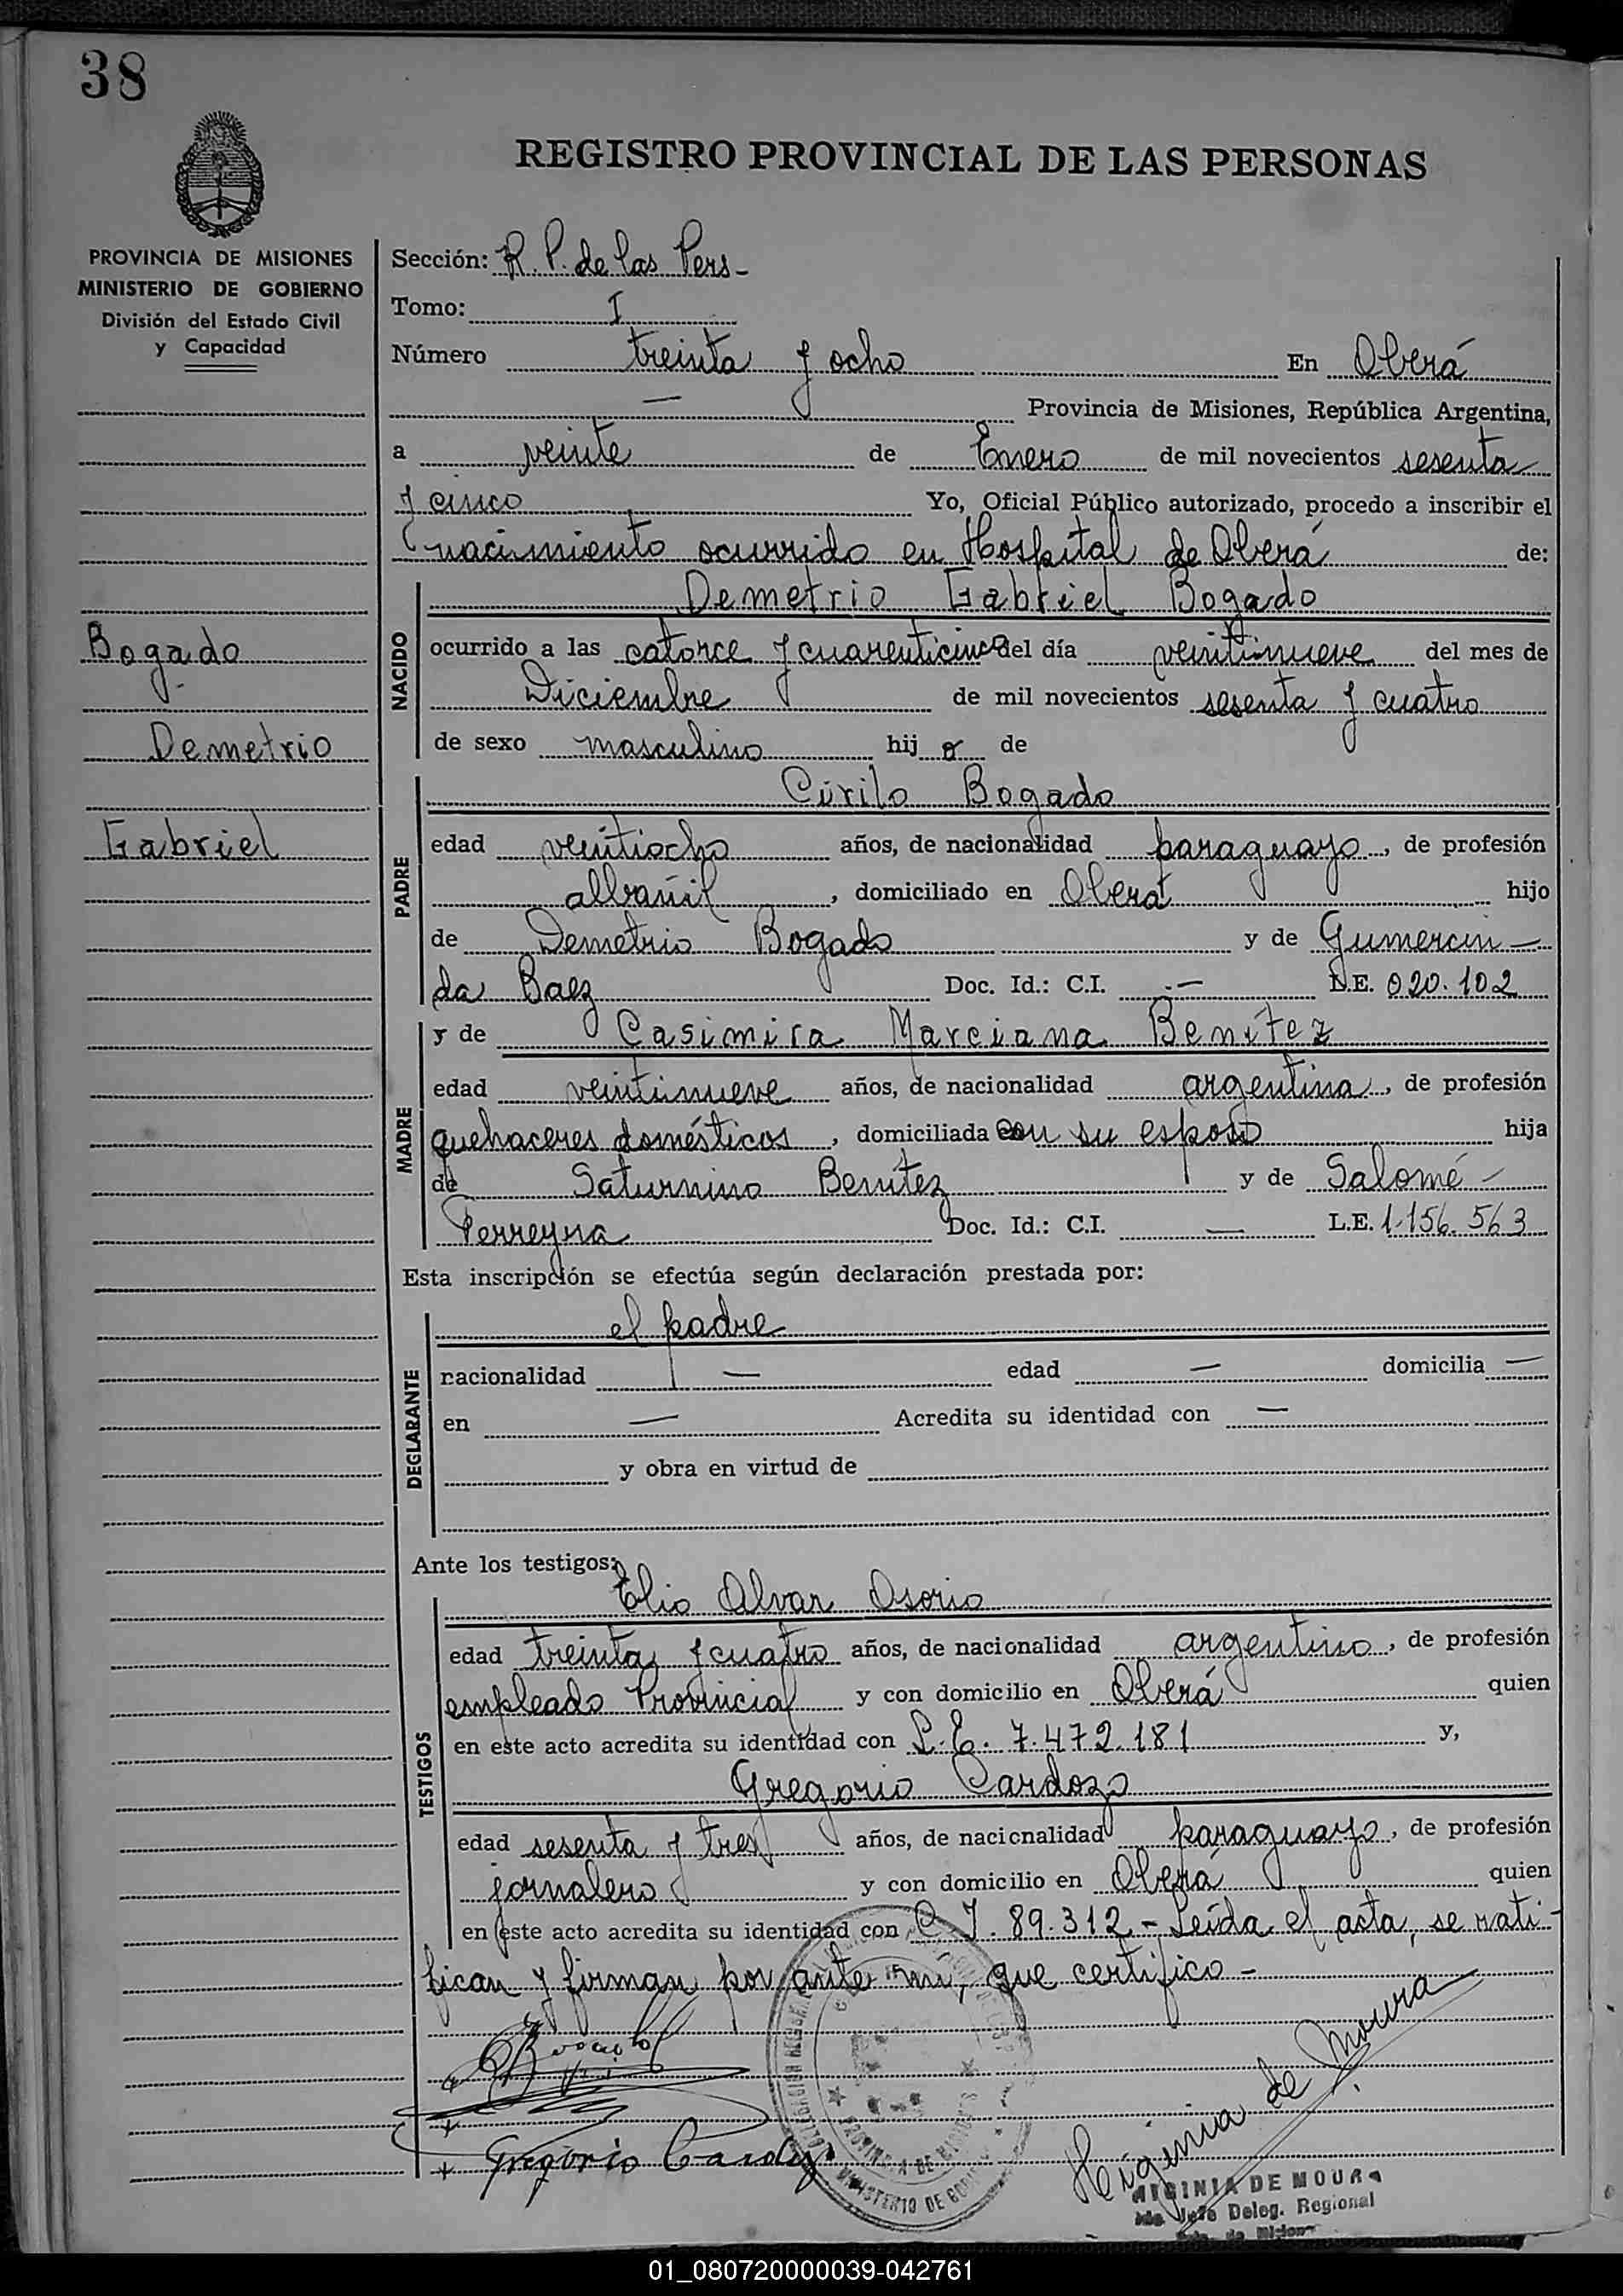 38
REGISTRO PROVINCIAL DE LAS PERSONAS
PROVINCIA DE MISIONES
MINISTERIO DE GOBIERNO
División del Estado Civil
y Capacidad
Bogado
Demetrio
Gabriel
Sección: R. P. de las Pers-
Tomo: I
Número treinta y ocho En Oberá
— Provincia de Misiones, República Argentina,
a veinte de Enero de mil novecientos sesenta
y cinco Yo, Oficial Público autorizado, procedo a inscribir el
nacimiento ocurrido en Hospital de Oberá de:
NACIDO
Demetrio Gabriel Bogado
ocurrido a las catorce y cuarenticinco del día veintinueve del mes de
Diciembre de mil novecientos sesenta y cuatro
de sexo masculino hijo de
PADRE
Cirilo Bogado
edad veintiocho años, de nacionalidad paraguayo, de profesión
albañil, domiciliado en Oberá hijo
de Demetrio Bogado y de Gumercin-
da Baez Doc. Id.: C.I. — D.E. 020.102
MADRE
y de Casimira Marciana Benitez
edad veintinueve años, de nacionalidad argentina, de profesión
quehaceres domésticos, domiciliada con su esposo hija
de Saturnino Benítez y de Salomé -
Ferreyra Doc. Id.: C.I. — L.E. 1.156.563
Esta inscripción se efectúa según declaración prestada por:
DECLARANTE
el padre
nacionalidad — edad — domicilia —
en — Acredita su identidad con —
y obra en virtud de
Ante los testigos:
TESTIGOS
Elio Alvar Osorio
edad treinta y cuatro años, de nacionalidad argentino, de profesión
empleado Provincial y con domicilio en Oberá quien
en este acto acredita su identidad con L.E. 7.472.181 y,
Gregorio Cardozo
edad sesenta y tres años, de nacionalidad paraguayo, de profesión
jornalero y con domicilio en Oberá quien
en este acto acredita su identidad con C I. 89.312 - Leída el acta, se rati-
fican y firman por ante mi, que certifico -
Gregorio Cardozo
Higinia de Moura
HIGINIA DE MOURA
Jefe Deleg. Regional
PROVINCIA DE MISIONES
MINISTERIO DE GOBIERNO
01_080720000039-042761